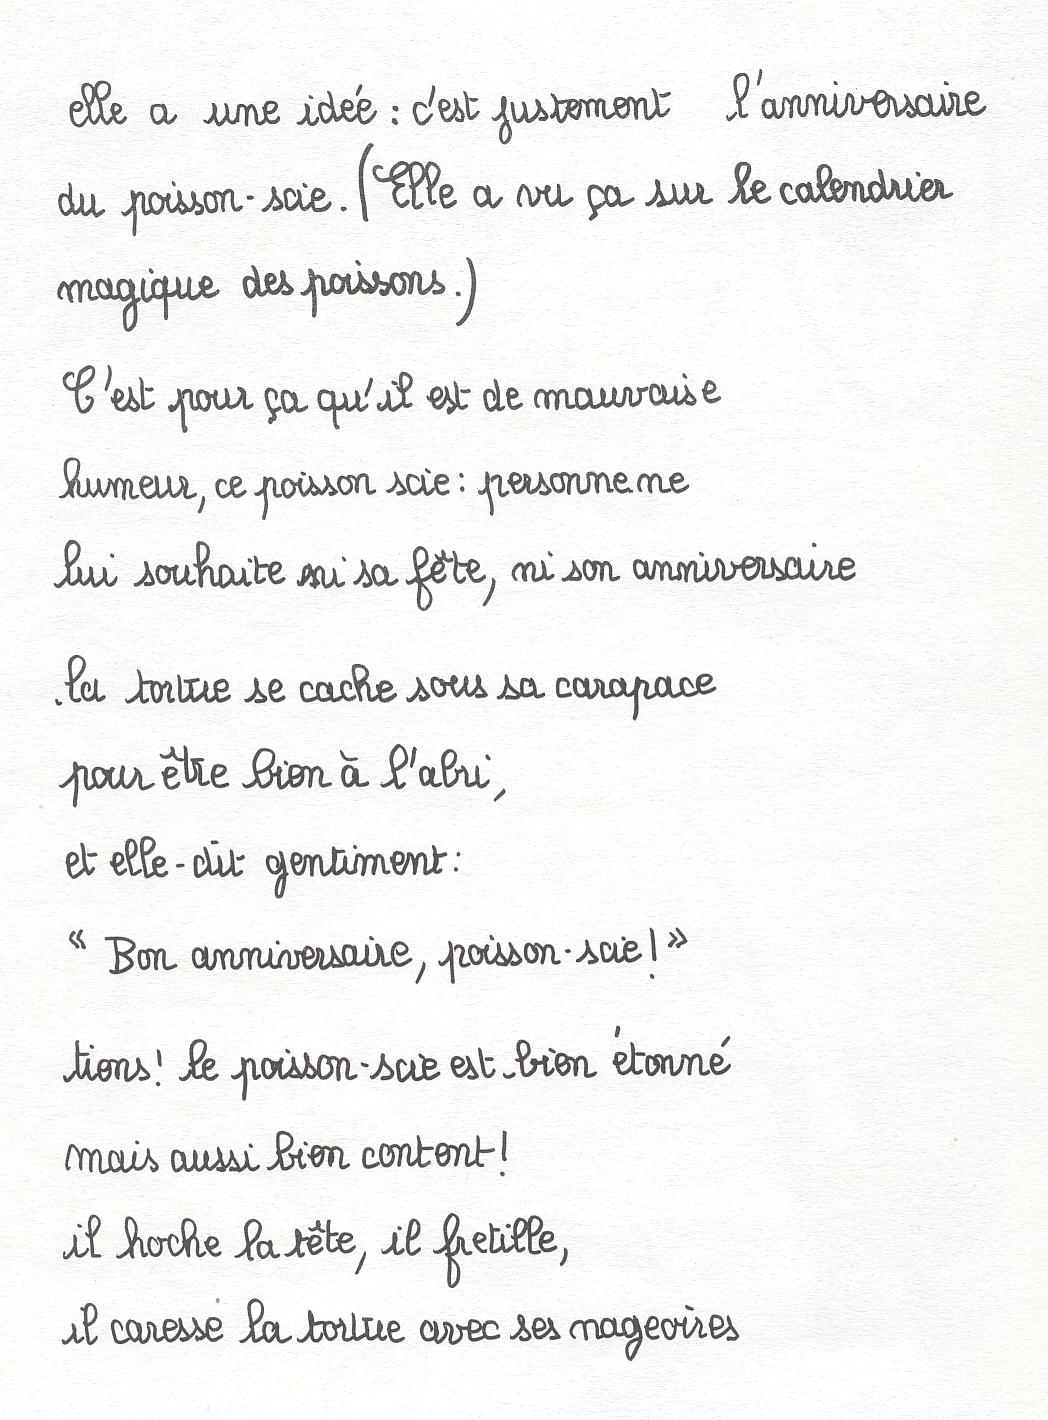 elle a une idée : c'est justement l'anniversaire
du poisson-scie. (Elle a vu ça sur le calendrier
magique des poissons.)
C'est pour ça qu'il est de mauvaise
humeur, ce poisson scie : personne ne
lui souhaite ni sa fête, ni son anniversaire
la tortue se cache sous sa carapace
pour être bien à l'abri,
et elle-dit gentiment :
“ Bon anniversaire, poisson-scie ! »
tiens ! le poisson-scie est bien étonné
mais aussi bien content !
il hoche la tête, il fretille,
il caresse la tortue avec ses nageoires